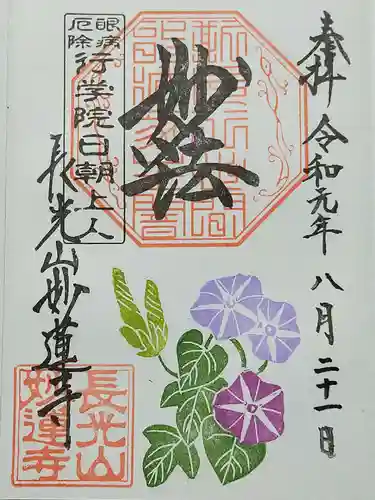 奉拝 令和元年 八月二十一日
妙法
眼病
厄除
行学院日朝上人
長光山妙蓮寺
長光山
妙蓮寺